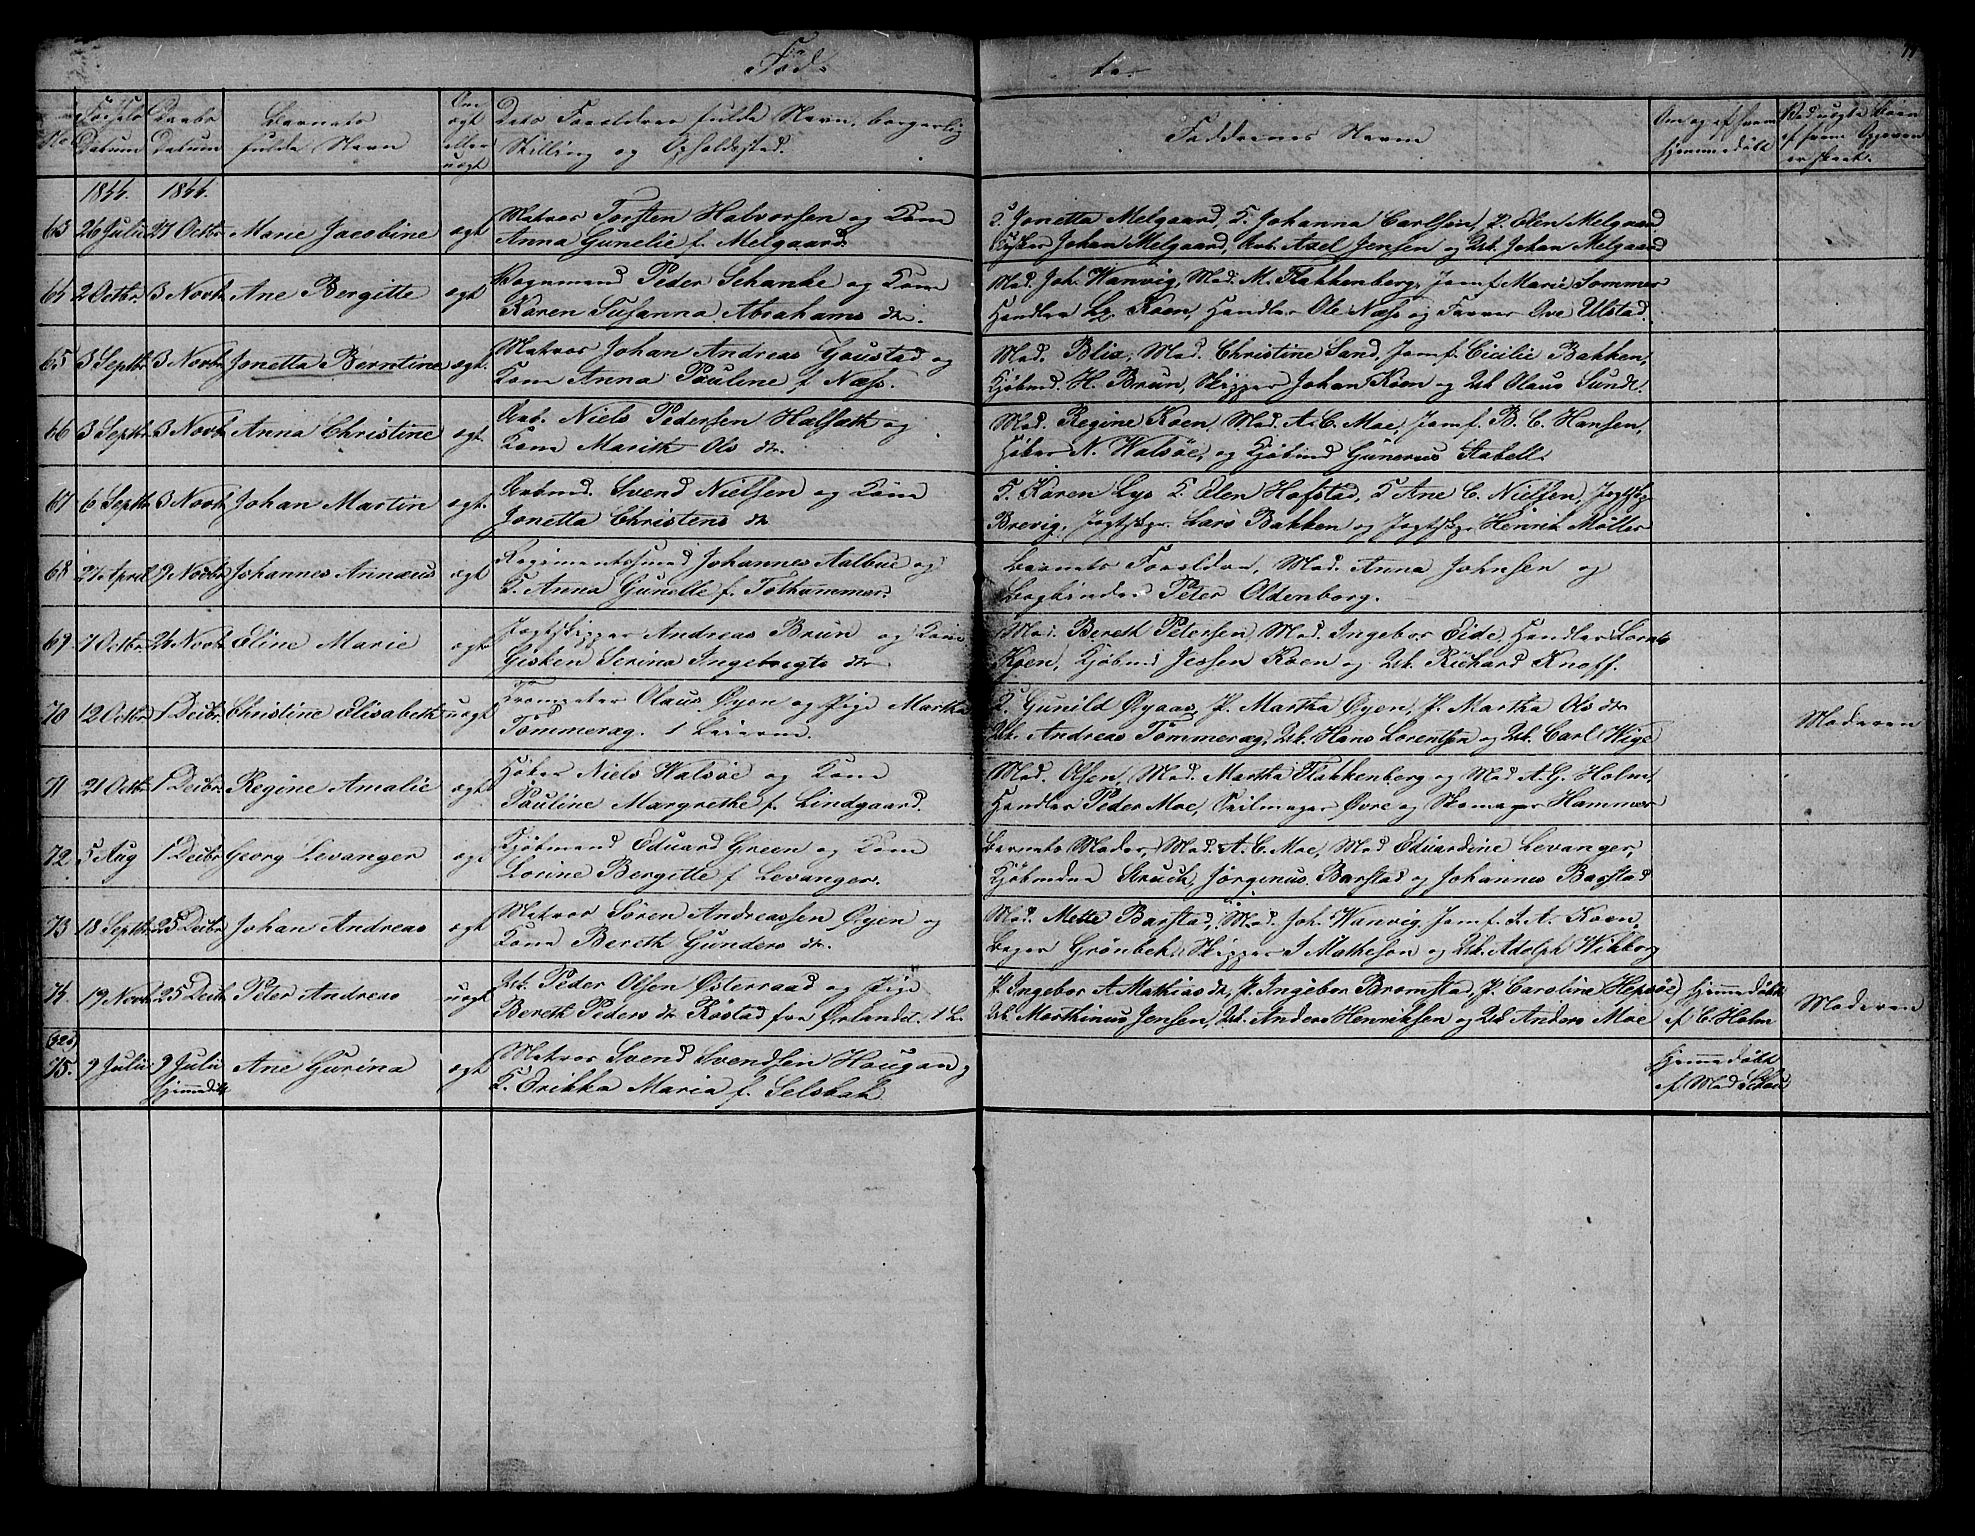 Fød- te
No
Fødsels Datum
Daabs Datum
Barnets fulde Navn
Om ægt eller uægt
Dets Forældres fulde Navn, borgerlig Stilling og Opholdssted.
Faddernes Navne
Om og af hvem hjemmedøbt
Ved uægte Børn af hvem Opgaven er skeet.
1844. 1844.
63 26 Julii 27 Octbr Marie Jacobine ægt
Matros Torsten Halvorsen og Kone
Anna Gunelie f. Melgaard
K. Jonetta Melgaard, K. Johanna Carlsen, P. Elen Melgaard
Johan Melgaard, Axel Jensen og Johan Melgaard
64 2 Octbr 3 Novbr Ane Bergitte ægt
Vognmand Peder Schanke og Kone
Karen Susanna Abrahams dtr.
Mad. Joh. Wanvig, Mad. M. Flakkenberg, Jomf. Marie Sommer
Handler Koen, Handler Ole Næss og Farver Ove Ulstad.
65 3 Septbr 3 Novbr Jonetta Berntine ægt.
Matros Johan Andreas Goustad og
Kone Anna Pauline f. Næss.
Mad. Blix, Mad. Christine Sand, Jomf. Cicilie Bakken,
Kjøbmd. H. Brun, Skipper Johan Koen og Olaus Sunde.
66 3 Septbr 3 Novbr Anna Christine ægt.
Arb. Niels Pedersen Halseth og
Kone Marith Ols dtr.
Mad. Regine Koen, Mad. A. C. Moe, Jomf. B. C. Hansen,
Høker N. Walsøe, og Kjøbmd Gunerus Stabell.
67 6 Septbr 3 Novbr Johan Martin ægt.
Arbmd. Svend Nielsen og Kone
Jonetta Christens dtr
K. Karen Lys K. Elen Hofstad, K Ane C. Nielsen,
Brevig, Lars Bakken og Henrik Møller
68 27 April 9 Novbr Johannes Annæus ægt
Regimentssmed Johannes Aalbue og
K. Anna Gunelle f. Folhammer.
Barnets Forældre, Mad. Anna Johnsen og
Bogbinder Peter Oldenborg.
69 7 Octbr 24 Novbr Eline Marie ægt
Jagtskipper Andreas Brun og Kone
Gisken Serina Ingebrigts dtr
Mad. Bereth Petersen, Mad. Ingebor Eide, Handler Lornts
Koen, Kjøbmd Jessen Koen og Richard Knoff.
70 12 Octbr 1 Decbr Christine Elisabeth uægt
Trompeter Olaus Øyen og Pige Martha
Tommerag. 1 Leierm.
K. Gunild Øyaas, P. Martha Øyen, P. Martha Ols dtr
Andreas Tommerag, Hans Lorentsen og Carl Wige
Moderen
71 21 Octbr 1 Decbr Regine Amalie ægt
Høker Niels Walsøe og Kone
Pauline Margrethe f. Lindgaard.
Mad. Olsen, Mad. Martha Flakkenberg og Mad A. G. Holm,
Handler Peder Moe, Seilmager Øvre og Skomager Hammer
72 5 Aug 1 Decbr Georg Levanger ægt
Kjøbmand Eduard Green og Kone
Lorine Bergitte f. Levanger.
Barnets Moder, Mad. A. C. Moe, Mad Eduardine Levanger,
Kjøbmdne Jørginus Barstad og Johannes Barstad
73 18 Septbr 25 Decbr Johan Andreas ægt
Matros Søren Andreassen Øyen og
Kone Bereth Gunders dtr.
Mad. Mette Barstad, Mad. Joh. Wanvig, Jomf. Koen,
Bager Grønbek, Skipper I Matheson og Adolph Wikborg
74 19 Novb 25 Decb Peter Andreas uægt
Peder Olsen Østerraad og Pige
Bereth Peders dtr Røstad fra Ørlandet. 1 L.
P. Ingebor A. Mathias dtr, P. Ingebor Bromstad, P. Caroline Hepsøe
Marthinus Jensen, Anders Henriksen og Anders Moe
hjemmedøbt
af C. Holm
Moderen
75. 9 Julii 9 Julii Ane Gurina ægt
hjemmedøbt
Matros Svend Svendsen Haugan og
K. Erikka Maria f. Selsbak
hjemmedøbt
af Mad Schou